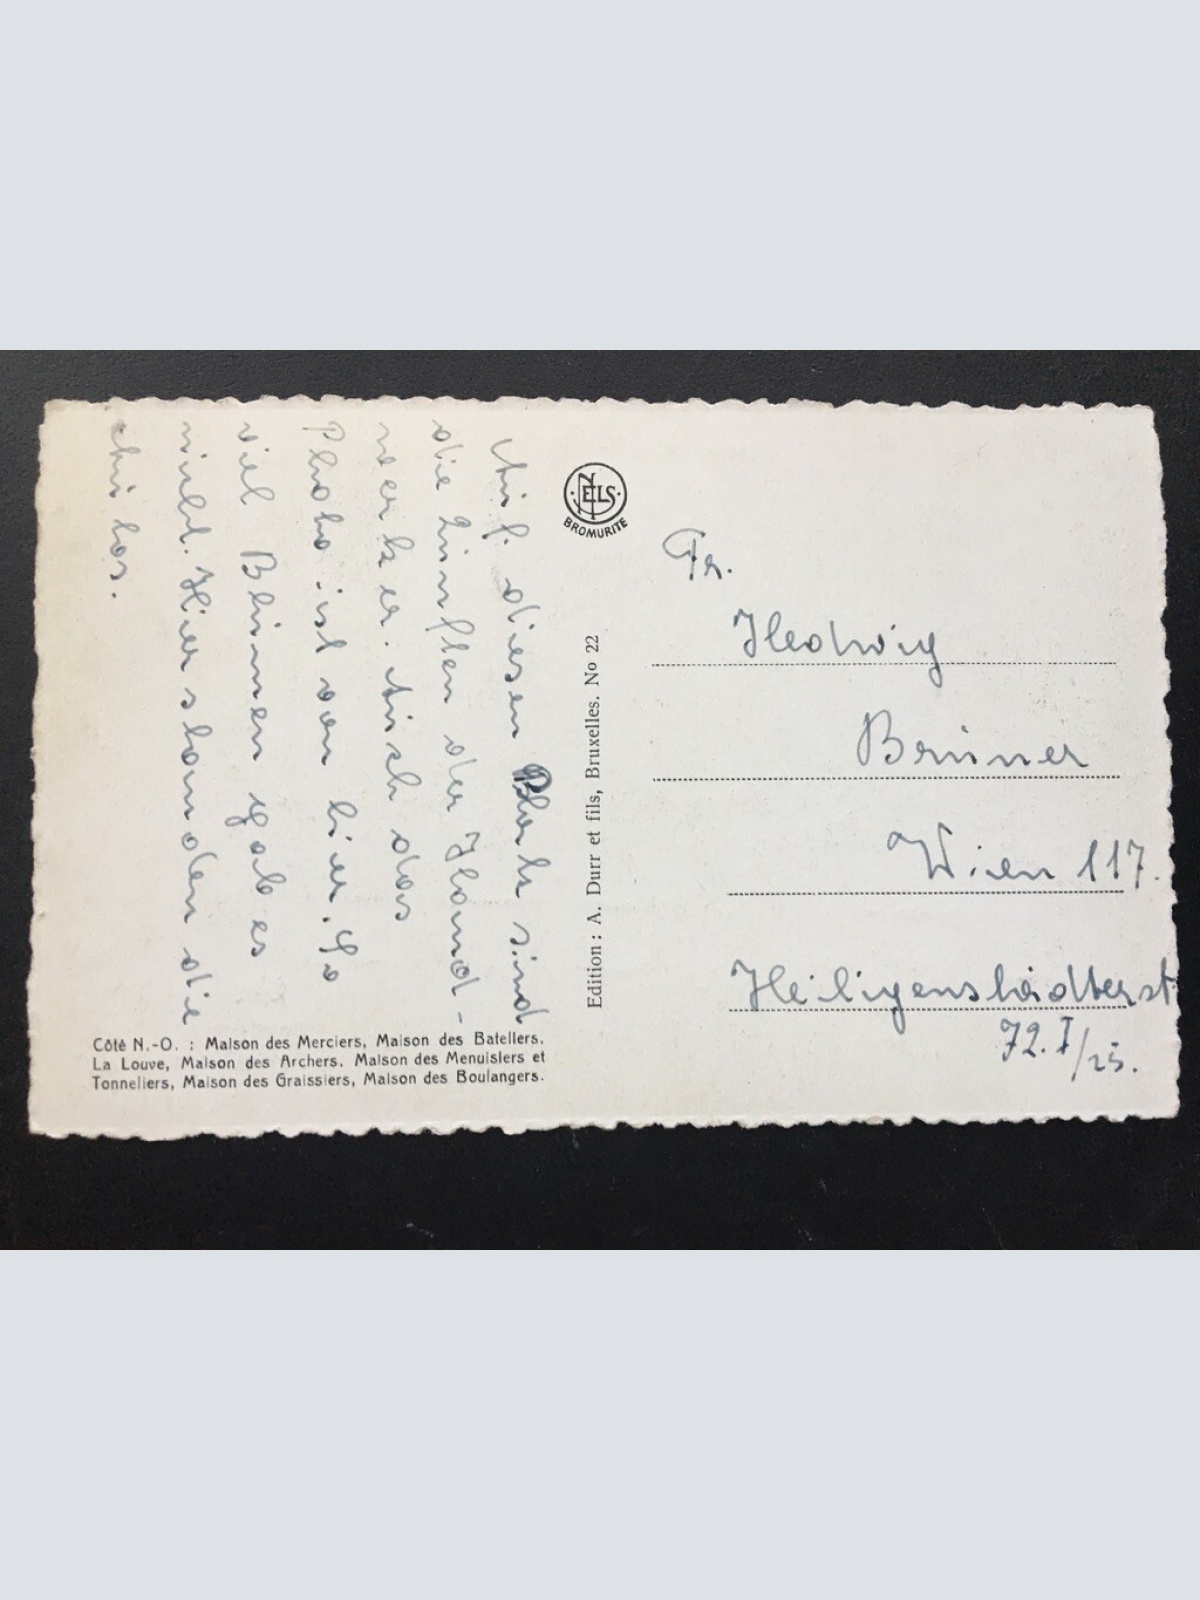 Auf diesen Platz sind
die Zunften der Hand-
werker. Auch das
Photo ist von hier. So
viel Blumen gab es
nicht. Hier standen die
Autos.
NELS
BROMURITE
Edition : A. Durr et fils, Bruxelles. No 22
Fr.
Hedwig
Bruner
Wien 117.
Heiligenstädterst.
72.I/25.
Côté N.-O. : Maison des Merciers, Maison des Bateliers,
La Louve, Maison des Archers, Maison des Menuisiers et
Tonneliers, Maison des Graissiers, Maison des Boulangers.